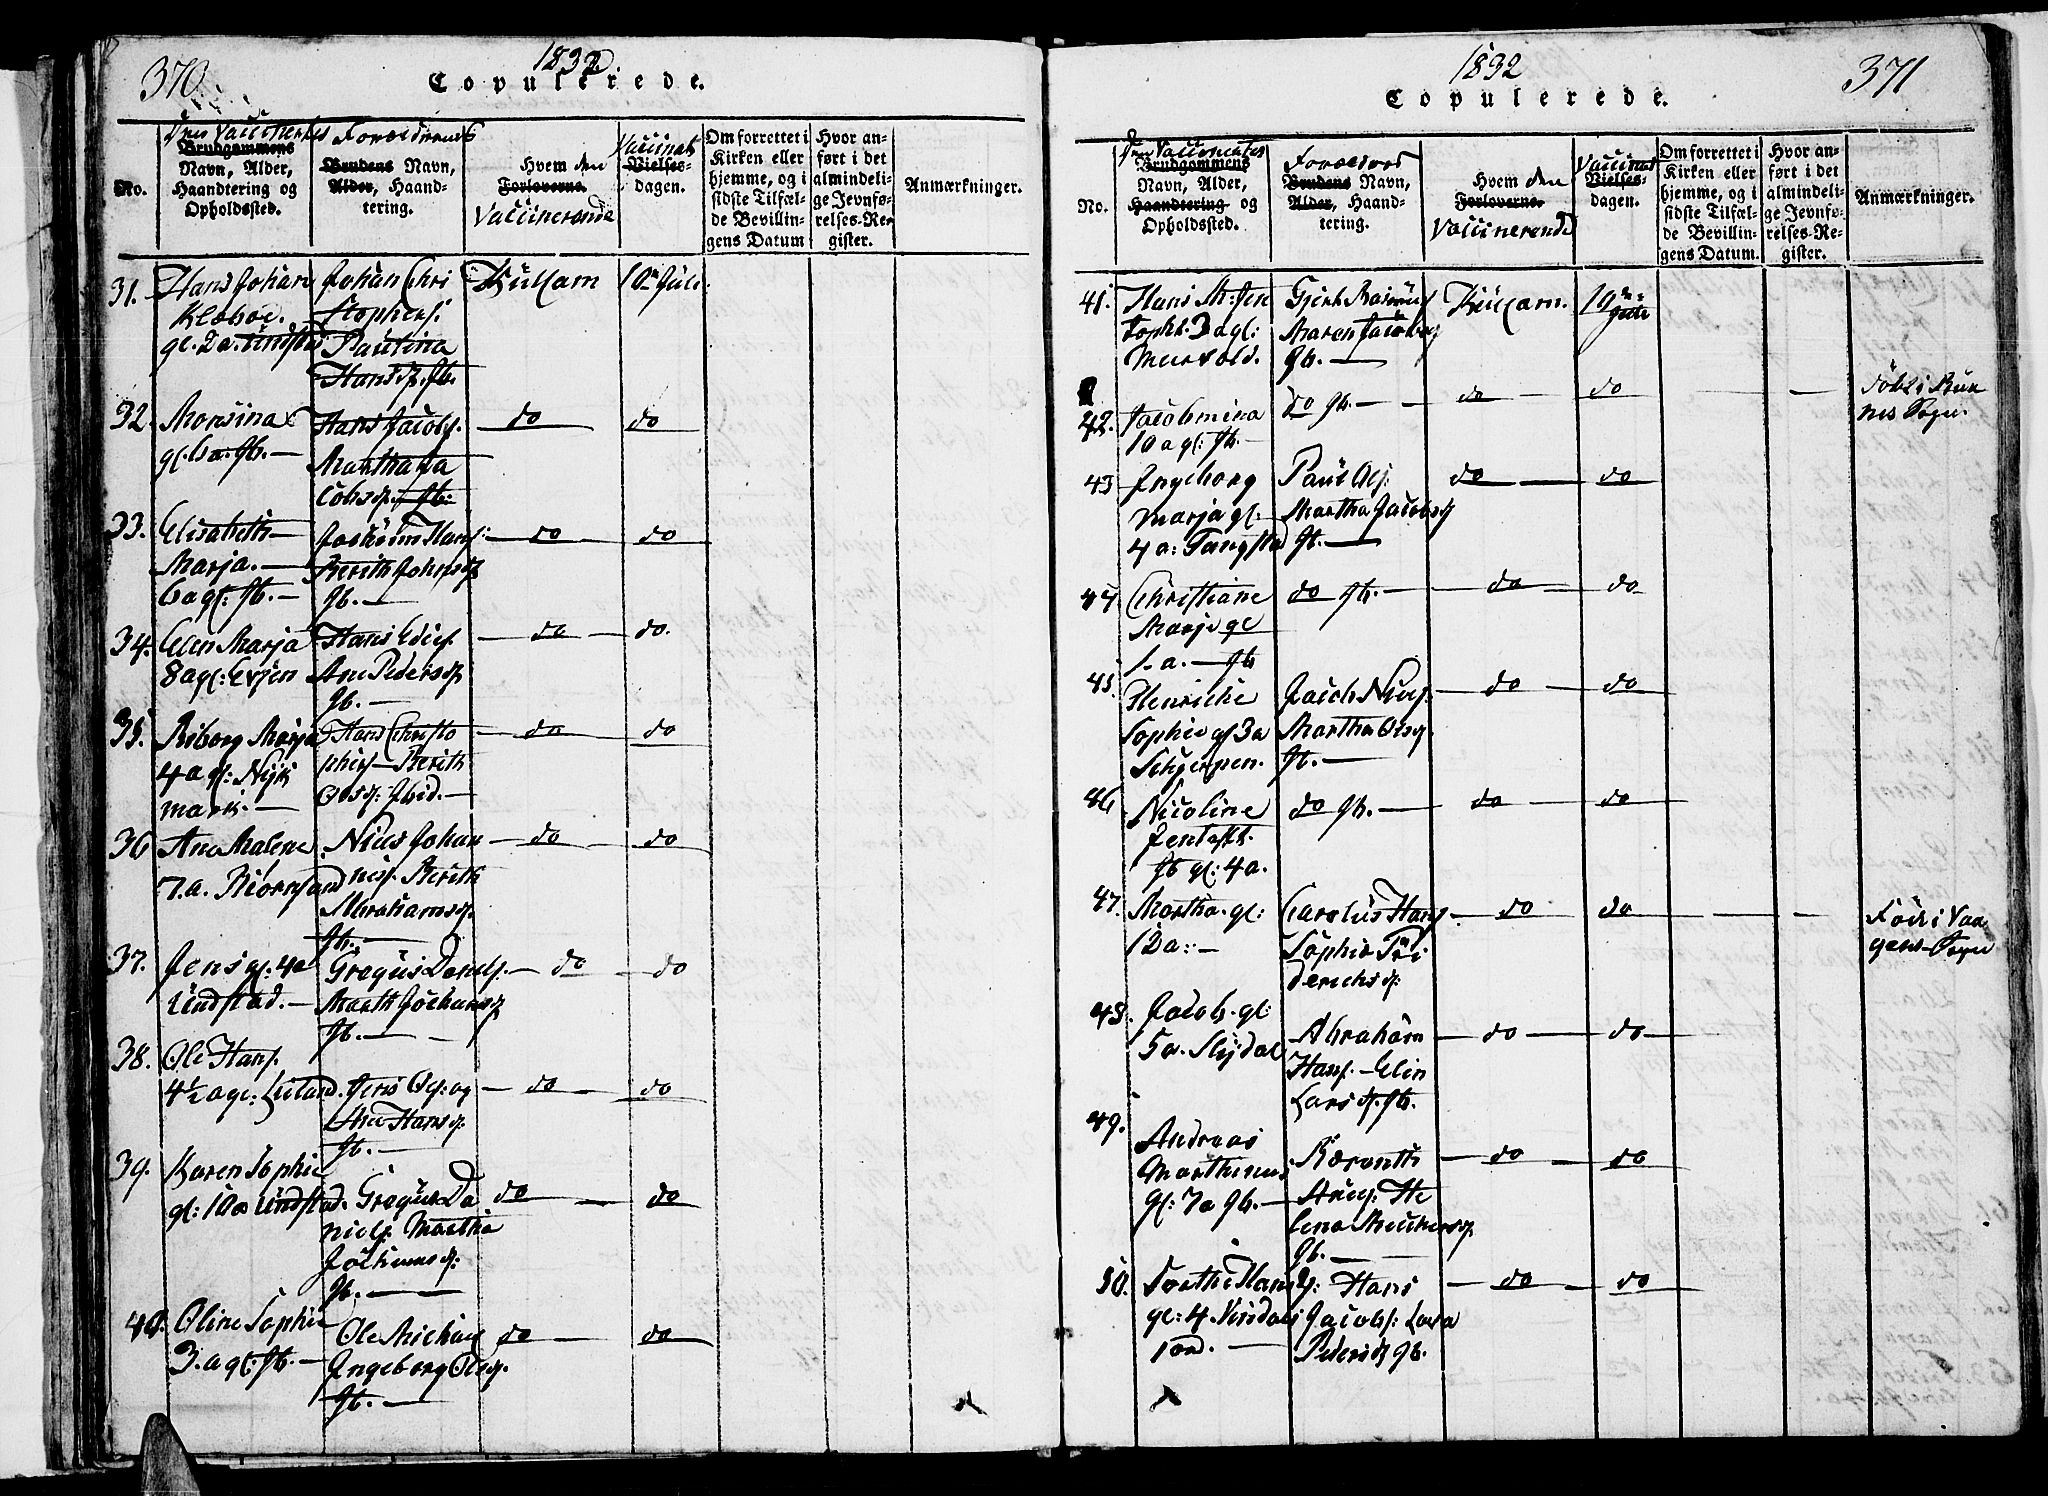 370
1832
Copulerede.
No.
Den Vaccinertes
Brudgommens
Navn, Alder,
Haandtering og
Opholdssted.
Forældrenes
Brudens Navn,
Alder, Haand-
tering.
Hvem den
Forloverne.
Vaccinerende
Vaccinat
Vielses-
dagen.
Om forrettet i
Kirken eller
hjemme, og i
sidste Tilfæl-
de Bevillin-
gens Datum
Hvor an-
ført i det
almindeli-
ge Jevnfø-
relses-Re-
gister.
Anmærkninger.
31. Hans Johan
gl. 2 a. Undstad
Johan Chri
stophers.
Paulina
Hansd. Ib.
10de Juli
32. Monsina
gl. 6 a. Ib.
Hans Jacobs.
Martha Ja
cobsd. Ib.
do do
33. Elisabeth
Marja.
6 a gl. Ib.
Joakim Hans.
Berith Johnsd.
Ib.
do do
34. Elen Marja
8 a gl: Evjen
Hans
Ane Pedersd.
Ib.
do do
35. Marja
4 a gl:
mark.
Hans Christo
phers. Berith
Olsd. Ibid.
do do
36 Ane Malene
7. a.
Niels Johan
nes. Berith
Abrahamsd.
Ib.
do do
37. Jens gl: 4 a
Undstad.
Gregus Daniels.
Marth Jochumsd.
Ib.
do do
38. Ole Hans.
4½ a gl:
Jens Ols. og
Ane Hansd.
Ib.
do do
39. Karen Sophie
gl: 10 a Undstad.
Gregus Da
niels. Martha
Jochumsd:
Ib.
do do
40. Oline Sophie
3. a gl: Ib.
Ole Michael
Ingeborg Olsd.
Ib.
do do
1832
371
Copulerede.
No.
Den Vaccinertes
Brudgommens
Navn, Alder,
Haandtering og
Opholdssted.
Brudens Navn,
Alder, Haand-
tering.
Hvem den
Forloverne.
Vaccinerende
Vaccinat
Vielses-
dagen.
Om forrettet i
Kirken eller
hjemme, og i
sidste Tilfæl-
de Bevillin-
gens Datum.
Hvor an-
ført i det
almindeli-
ge Jevnfø-
relses-Re-
gister.
Anmærkninger.
41. Hans
3 a gl:
Maren Jacobsd.
Ib.
19de
42. Jacobmina
10 a gl: Ib.
do Ib. do do
Født i Buk
nes Sogn.
43 Ingeborg
Marja gl:
4 a: Tangstad
Paul Ols.
Martha Jacobsd
Ib.
do do
44 Christiane
Marje gl
1. a. Ib
do Ib. do do
45. Henriche
Sophie gl 3 a
Jacob Niels.
Martha Olsd.
Ib.
do do
46 Nicoline
Ib gl: 4 a.
do Ib. do do
47. Martha. gl:
12 a:
Carolus Hans.
Sophie Fri
derichsd.
do do
Født i Vaa
gens Sogn
48. Jacob. gl:
5 a.
Abraham
Hans. Elen
Larsd. Ib.
do do
49. Andreas
Marthinus
gl: 7 a Ib.
He
lena
Ib.
do do
50.
gl: 4.
Hans
Jacobs:
Pedersd Ib.
do do